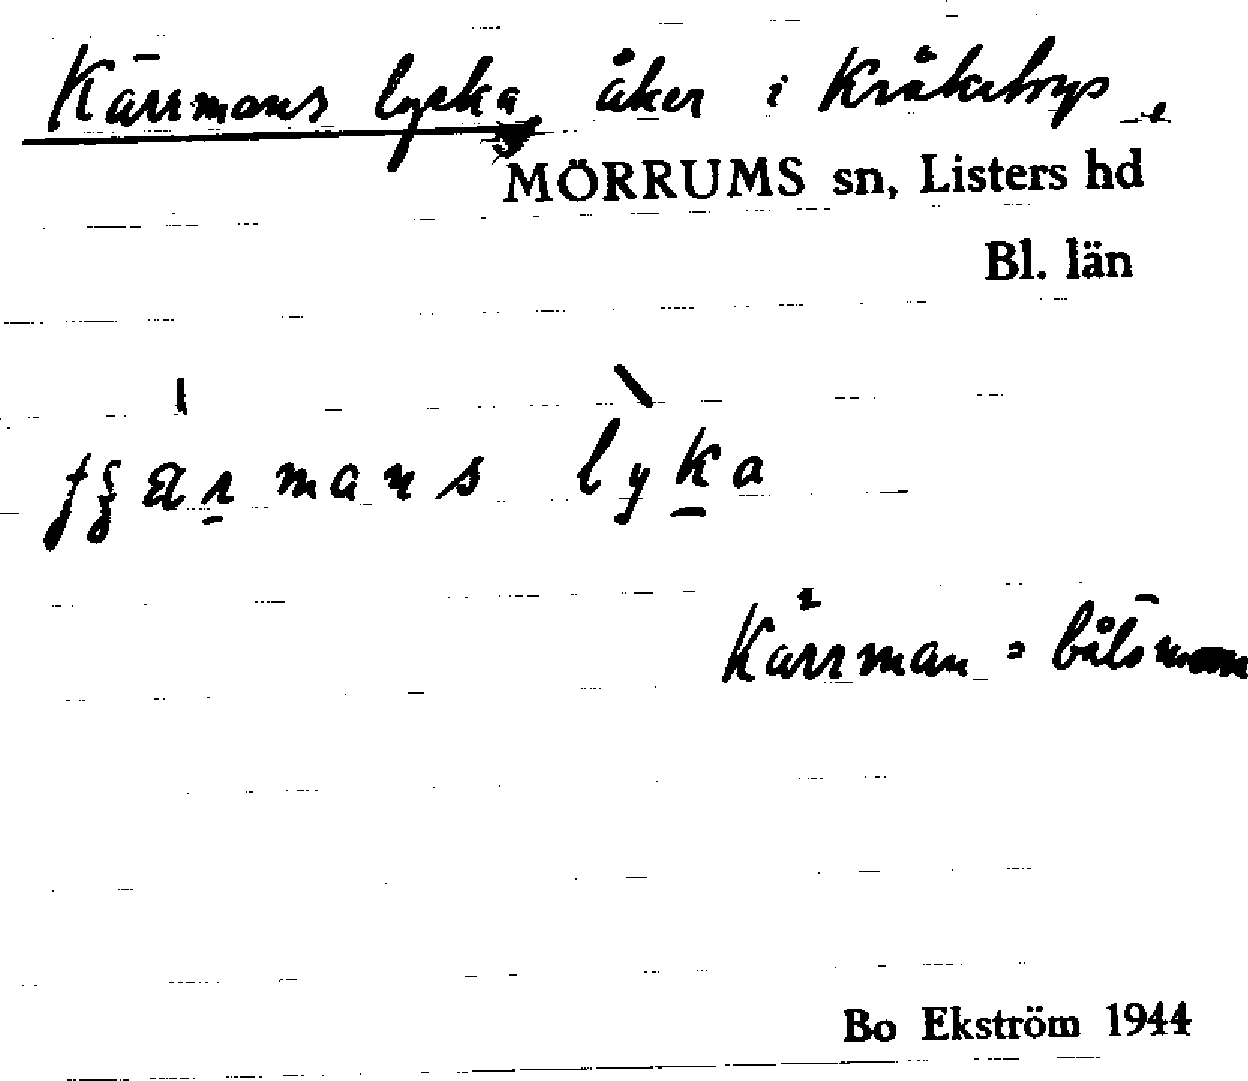 Kärrmans lycka, åker i
MÖRRUMS sn, Listers hd
Bl. län
lyka
Kärrman = båtsman
Bo Ekström 1944